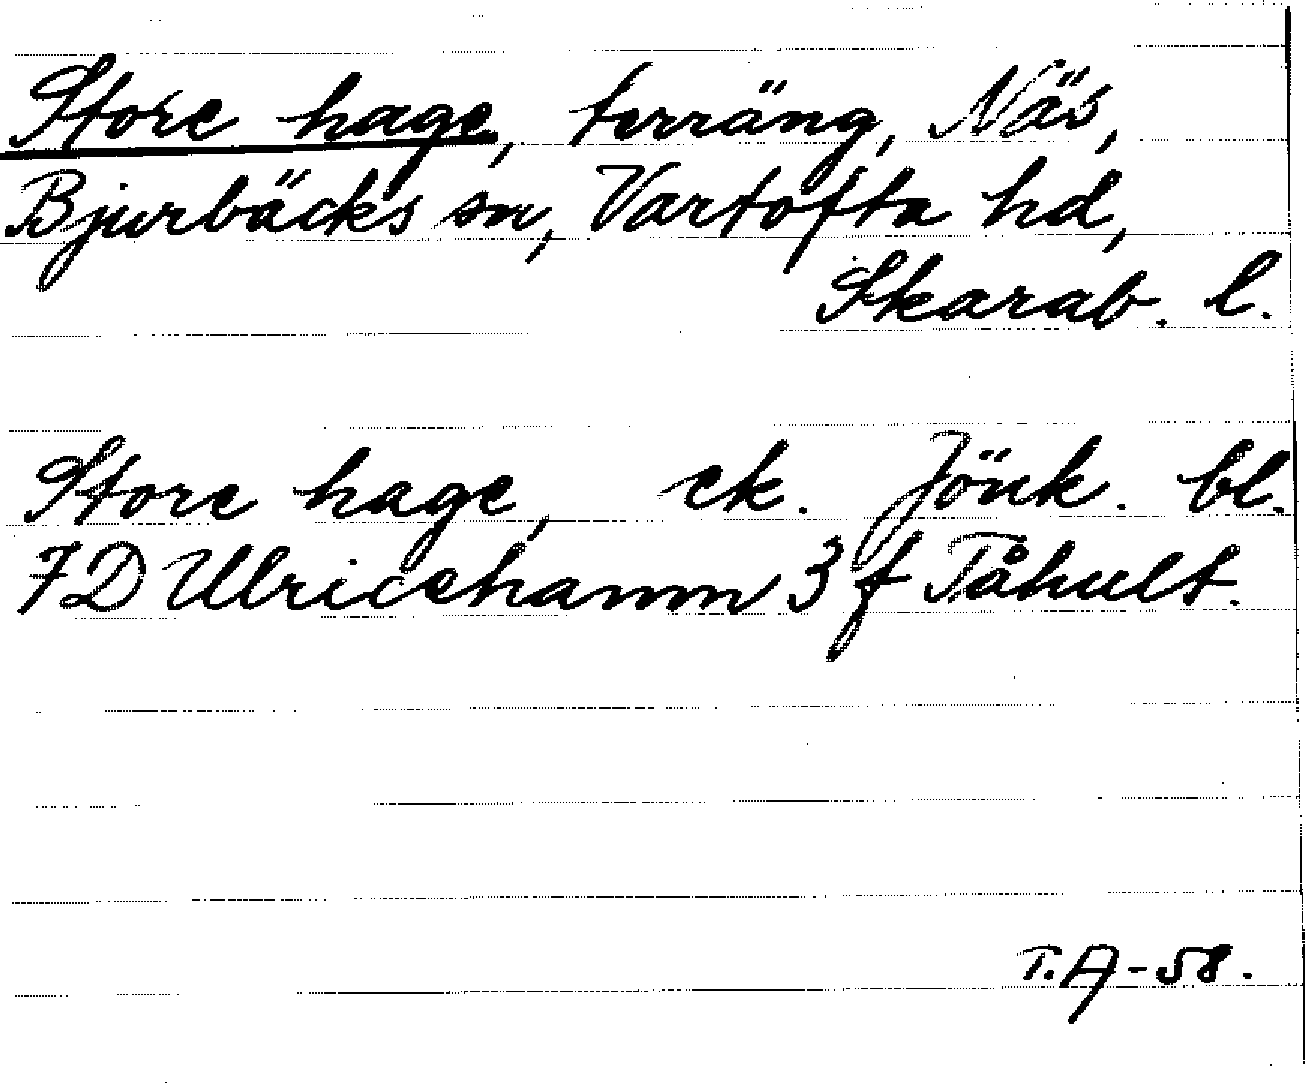 Store hage, terräng, Näs,
Bjurbäcks sn, Vartofta hd,
Skarab. l.
Store hage, ek. Jönk. bl.
7D Ulricehamn 3 f Tåhult.
T.A-58.